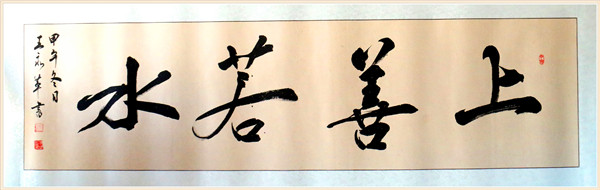 上善若水
甲午冬日